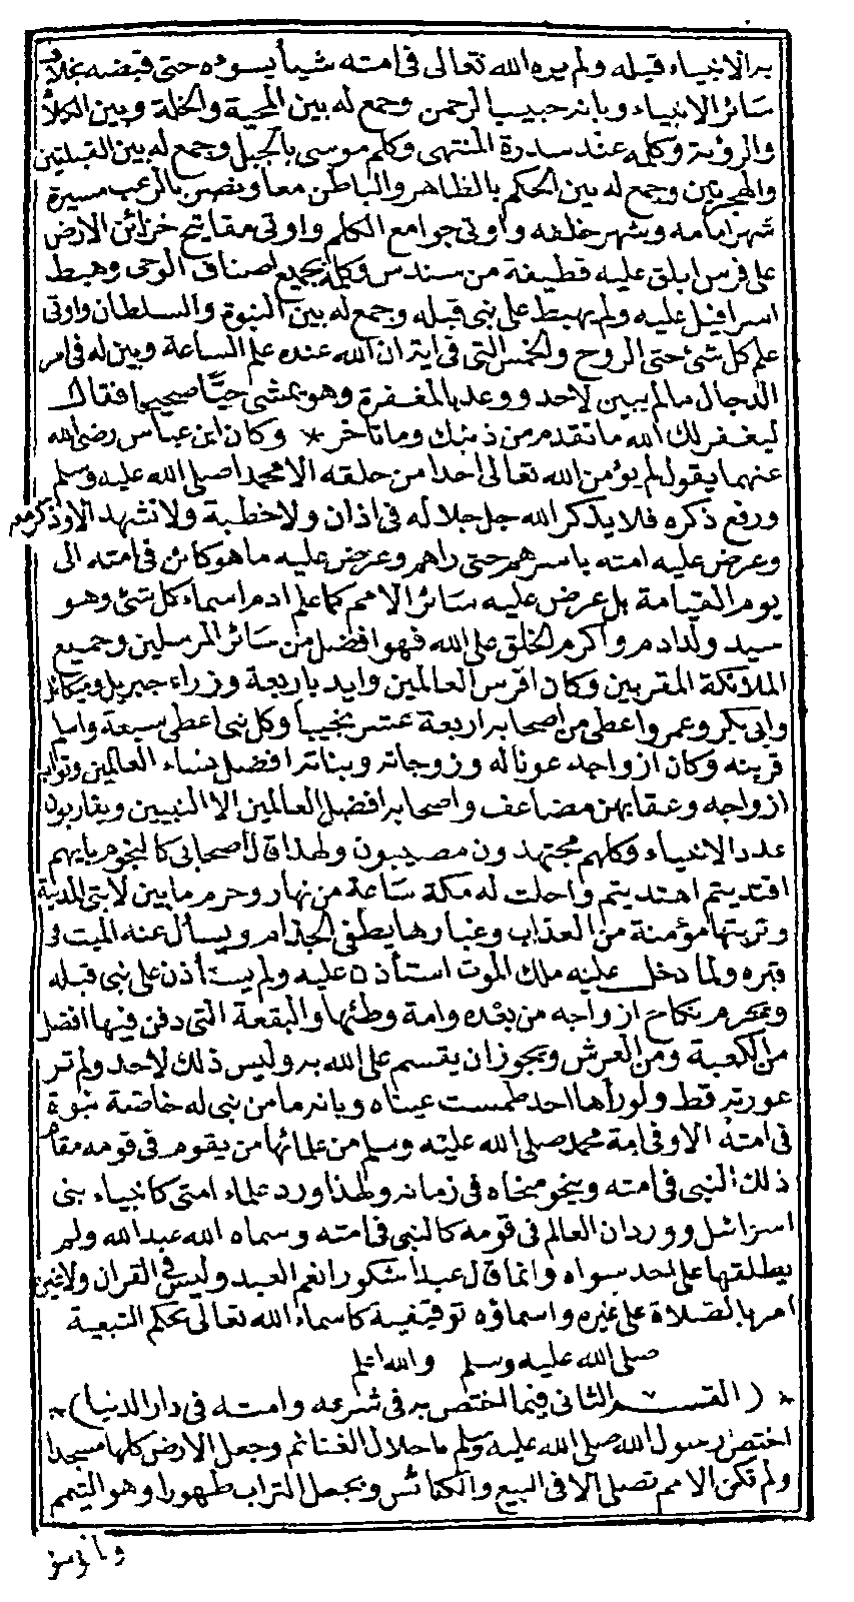 به الانبياء قبله ولم يره الله تعالى فى امته شيأ يسوءه حتى قبضه بخلاف
سائر الانبياء وبانه حبيب الرحمن وجمع له بين المحبة والخلة وبين الكلام
والرؤية وكلمه عند سدرة المنتهى وكلم موسى بالجبل وجمع له بين القبلتين
والهجرتين وجمع له بين الحكم بالظاهر والباطن معا ونصر بالرعب مسيرة
شهر امامه وشهر خلفه واوتى جوامع الكلم واوتى مفاتيح خزائن الارض
على فرس ابلق عليه قطيفة من سندس وكلمه بجميع اصناف الوحى وهبط
اسرافيل عليه ولم يهبط على نبى قبله وجمع له بين النبوة والسلطان واوتى
علم كل شئ حتى الروح والخمس التى فى اية ان الله عنده علم الساعة وبين له فى امر
الدجال مالم يبين لاحد ووعد بالمغفرة وهو يمشى حيا صحيحا فقال
ليغفر لك الله ما تقدم من ذنبك وما تأخر * وكان ابن عباس رضى الله
عنهما يقول لم يؤمن الله تعالى احدا من خلقه الا محمدا صلى الله عليه وسلم
ورفع ذكره فلا يذكر الله جل جلاله فى اذان ولا خطبة ولا تشهد الا وذكر معه
وعرض عليه امته باسرهم حتى راهم وعرض عليه ما هو كائن فى امته الى
يوم القيامة بل عرض عليه سائر الامم كما علم ادم اسماء كل شئ وهو
سيد ولد ادم واكرم الخلق على الله فهو افضل من سائر المرسلين وجميع
الملائكة المقربين وكان افرس العالمين وايد باربعة وزراء جبريل وميكائل
وابى بكر وعمر واعطى من اصحابه اربعة عشر نجيبا وكل نبى اعطى سبعة واسلم
قرينه وكان ازواجه عونا له وزوجاته وبناته افضل نساء العالمين وثواب
ازواجه وعقابهن مضاعف واصحابه افضل العالمين الا النبيين ويقاربون
عدد الانبياء وكلهم مجتهدون مصيبون ولهذا قال اصحابى كالنجوم بايهم
اقتديتم اهتديتم واحلت له مكة ساعة من نهار وحرم ما بين لابتى المدينة
وتربتها مؤمنة من العذاب وغبارها يطفى الجذام ويسأل عنه الميت فى
قبره ولما دخل عليه ملك الموت استأذن عليه ولم يستأذن على نبى قبله
ويحرم نكاح ازواجه من بعده وامة وطئها والبقعة التى دفن فيها افضل
من الكعبة ومن العرش ويجوز ان يقسم على الله به وليس ذلك لاحد ولم تر
عورته قط ولو رأها احد طمست عيناه وبانه ما من نبى له خاصة نبوة
فى امته الا وفى امة محمد صلى الله عليه وسلم من علمائها من يقوم فى قومه مقام
ذلك النبى فى امته وينحو منحاه فى زمانه ولهذا ورد علماء امتى كانبياء بنى
اسرائيل وورد ان العالم فى قومه كالنبى فى امته وسماه الله عبد الله ولم
يطلقها على احد سواه وانما قال عبدا شكورا نعم العبد وليس فى القران ولا غيره
امر بالصلاة على غيره واسماؤه توقيفية كاسماء الله تعالى بحكم التبعية
صلى الله عليه وسلم والله اعلم
* ( القسم الثانى فيما اختص به فى شرعه وامته فى دار الدنيا ) *
اختص رسول الله صلى الله عليه وسلم باحلال الغنائم وجعل الارض كلها مسجدا
ولم تكن الامم تصلى الا فى البيع والكنائس وبجعل التراب طهورا وهو التيمم